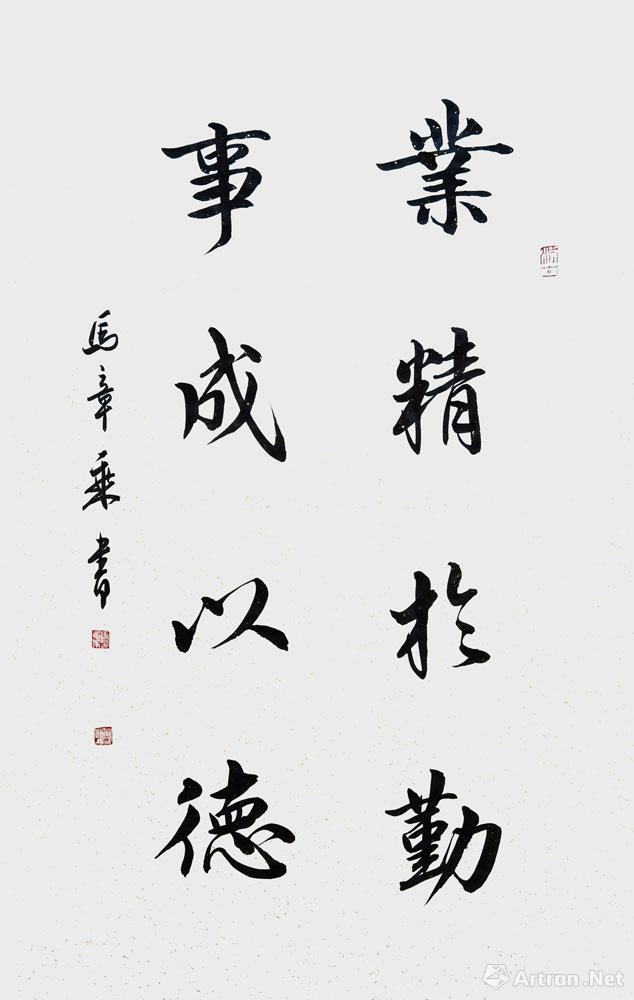 業精於勤
事成以德
馬章乘書
Artron.Net